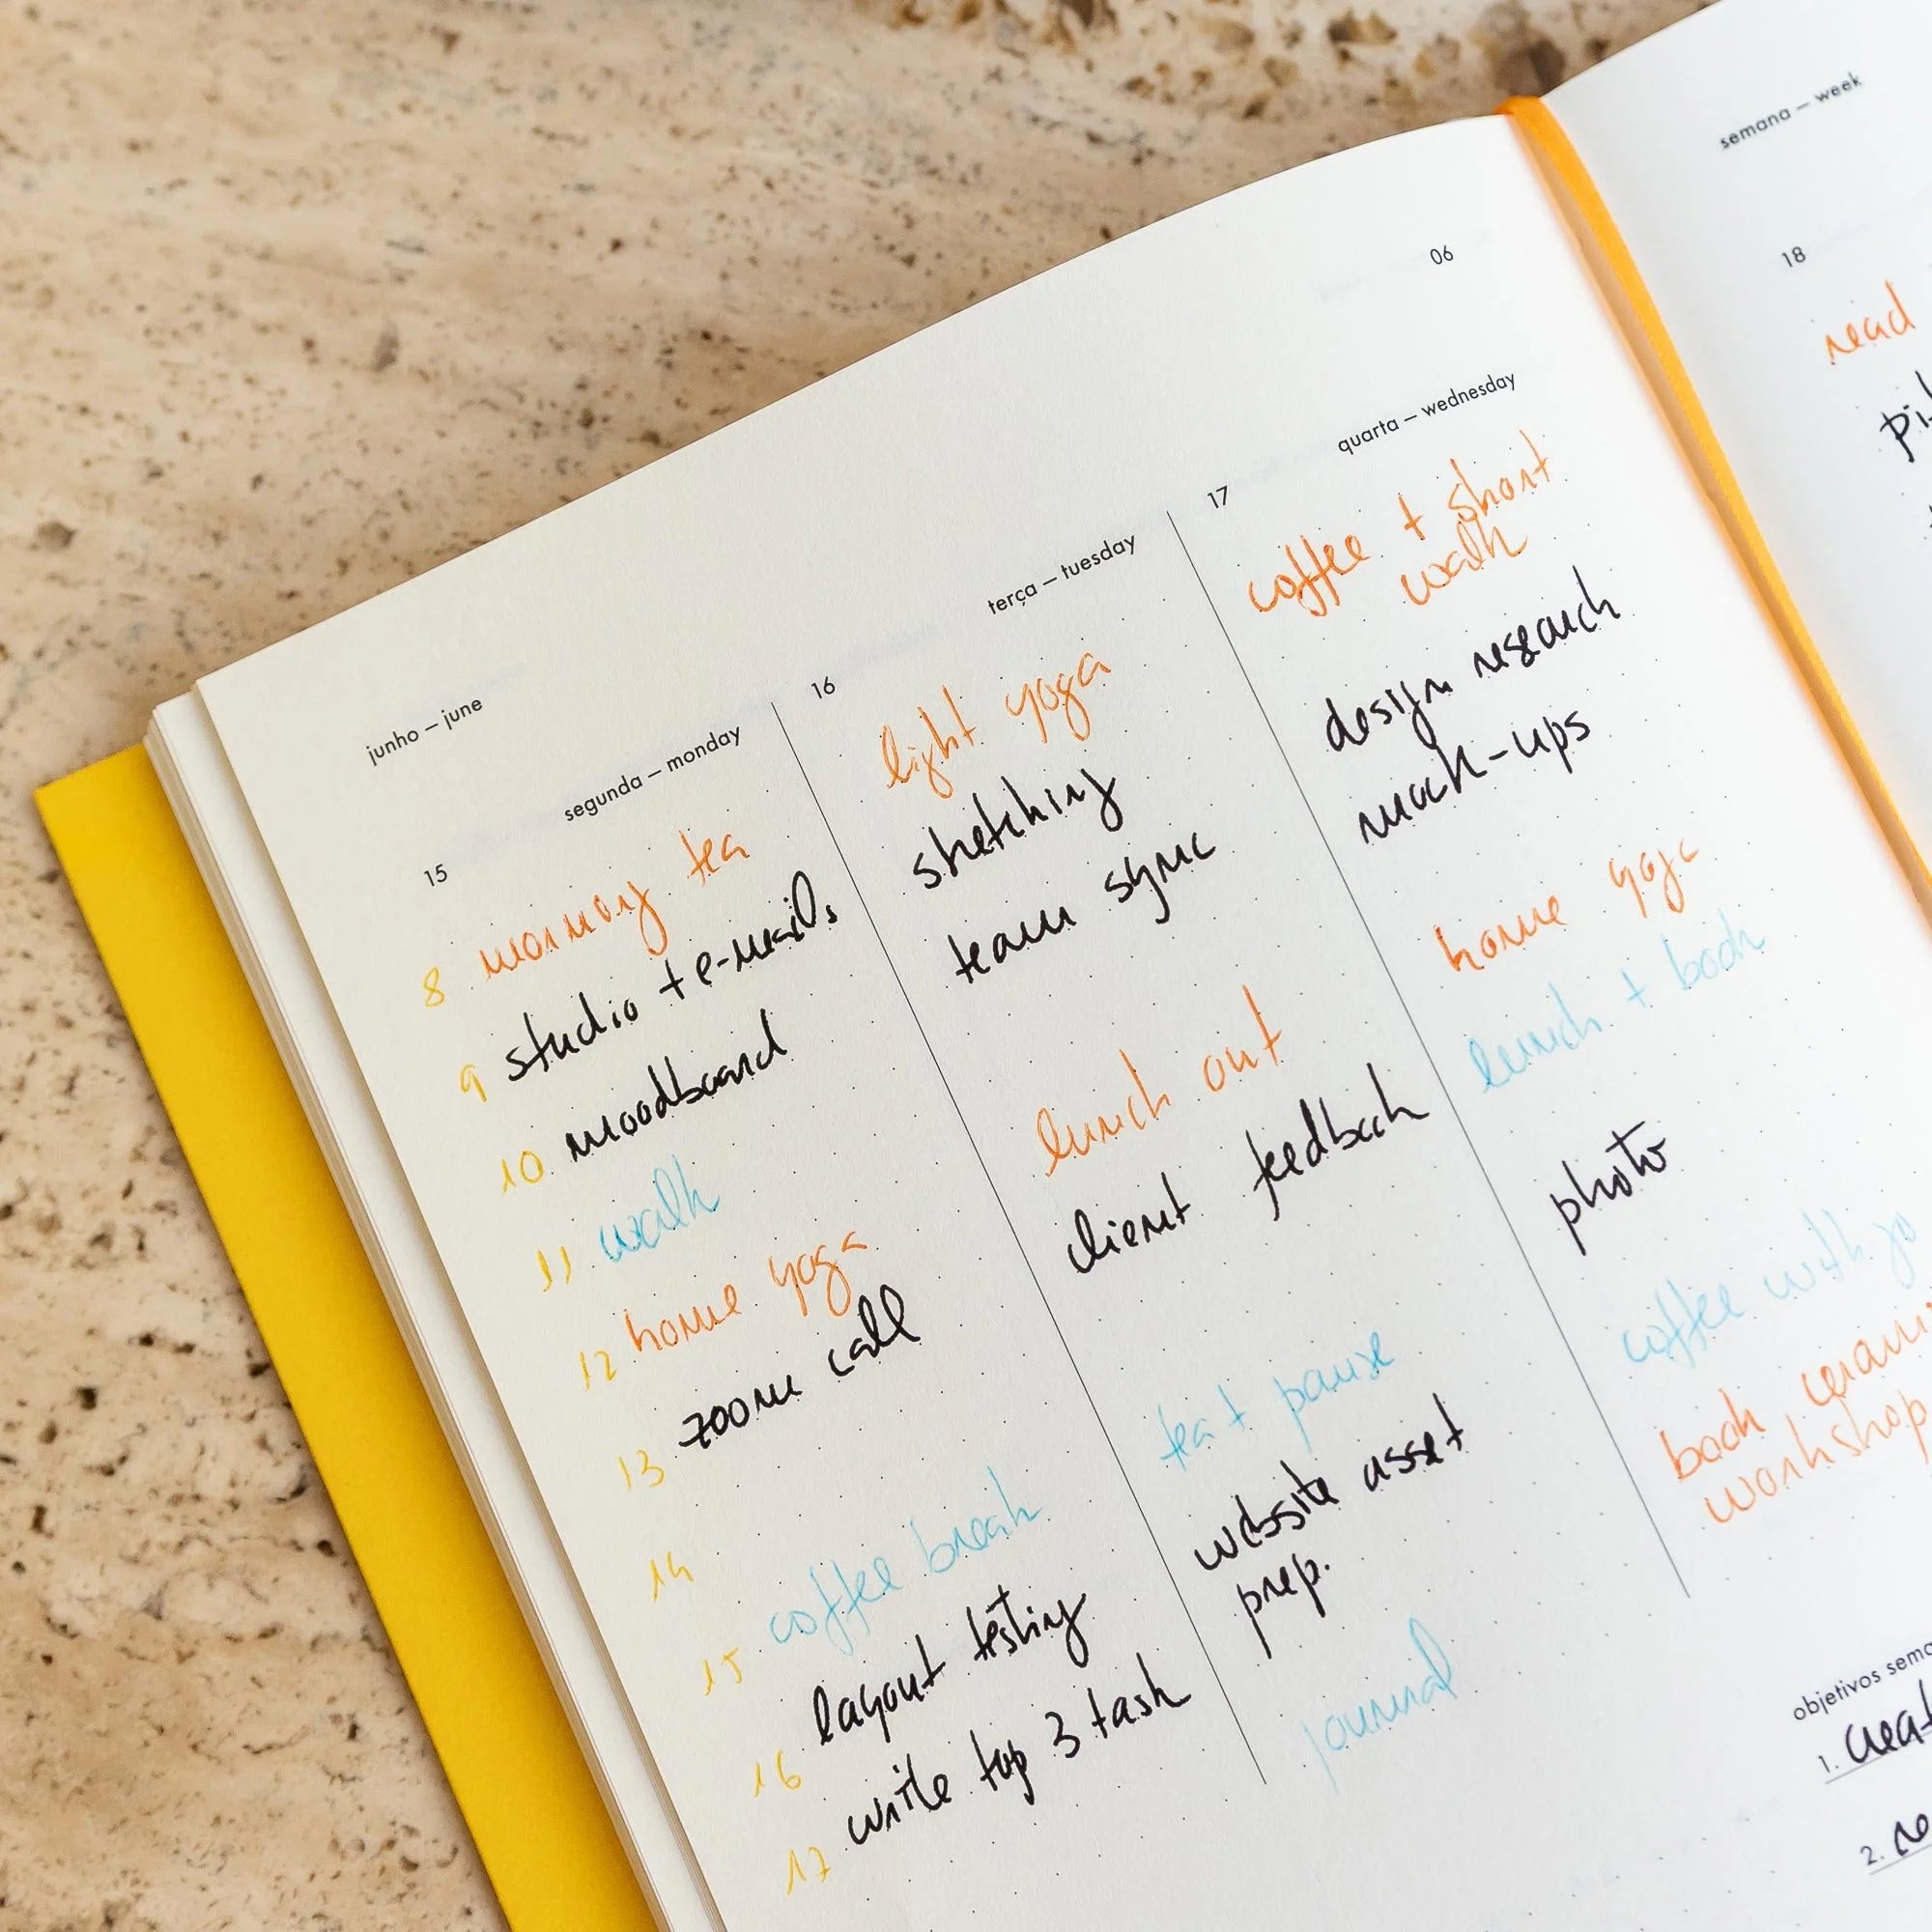 junho — june
06
segunda — monday
15
8 morning tea
9 studio + e-mails
10 moodboard
11 walk
12 home yoga
13 zoom call
14
15 coffee break
16 layout testing
17 write top 3 task
terça — tuesday
16
light yoga
stretching
team sync
lunch out
client feedback
tea + pause
website asset
prep.
journal
quarta — wednesday
17
coffee + short
walk
design research
mock-ups
home yoga
lunch + book
photo
coffee with
book
workshop
semana — week
18
read
objetivos
1.
2.